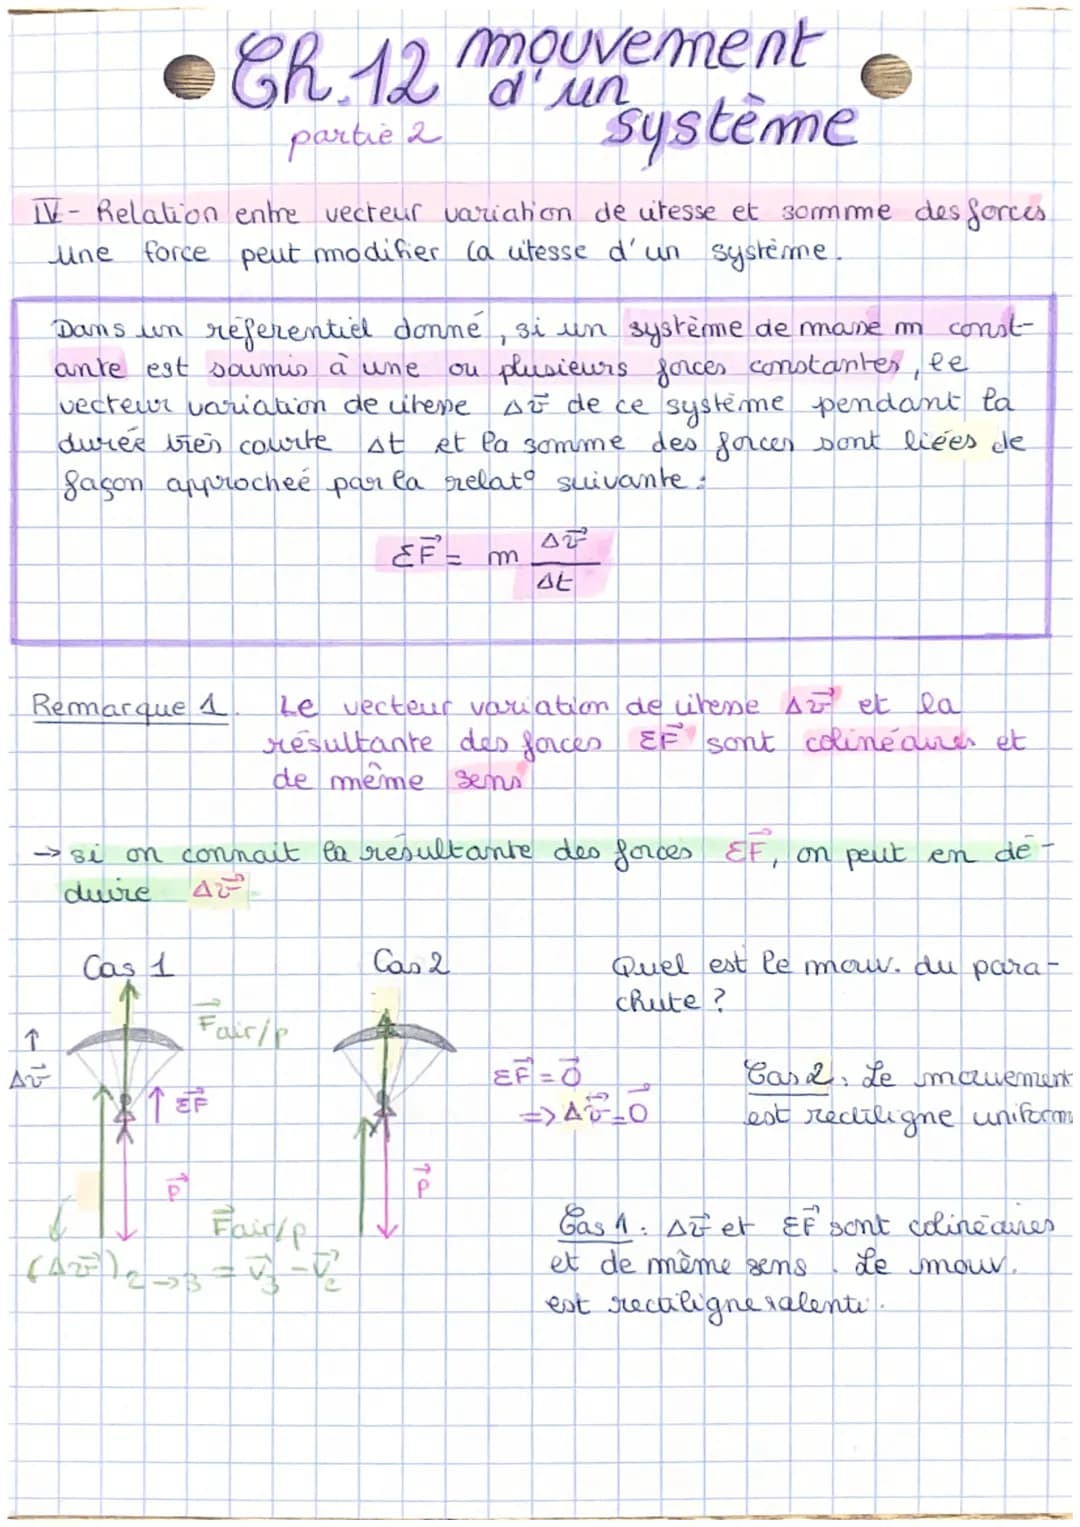 Ch.12 mouvement
d'un
système
partie 2
IV- Relation entre vecteur variation de vitesse et somme des forces
une force peut modifier la vitesse d'un système.
Dans un référentiel donné, si un système de masse m const-
ante est soumis à une ou plusieurs forces constantes, le
vecteur variation de vitesse Δv⃗ de ce système pendant la
durée très courte Δt et la somme des forces sont liées de
façon approcheé par la relat° suivante :
ΣF⃗ = m Δv⃗
Δt
Remarque 1. Le vecteur variation de vitesse Δv⃗ et la
résultante des forces ΣF⃗ sont colinéaires et
de même sens
→ si on connait la résultante des forces ΣF⃗, on peut en dé-
duire Δv⃗
Cas 1
Cas 2
Quel est le mouv. du para-
chute ?
F⃗air/p
↑
Δv⃗
↑ ΣF⃗
ΣF⃗ = 0⃗
=> Δv⃗ = 0⃗
Cas 2: Le mouvement
est rectiligne uniform
P⃗
P⃗
F⃗air/p
(Δv⃗)2→3 = v⃗3 - v⃗2
Cas 1: Δv⃗ et ΣF⃗ sont colinéaires
et de même sens. Le mouv.
est rectiligne ralenti.